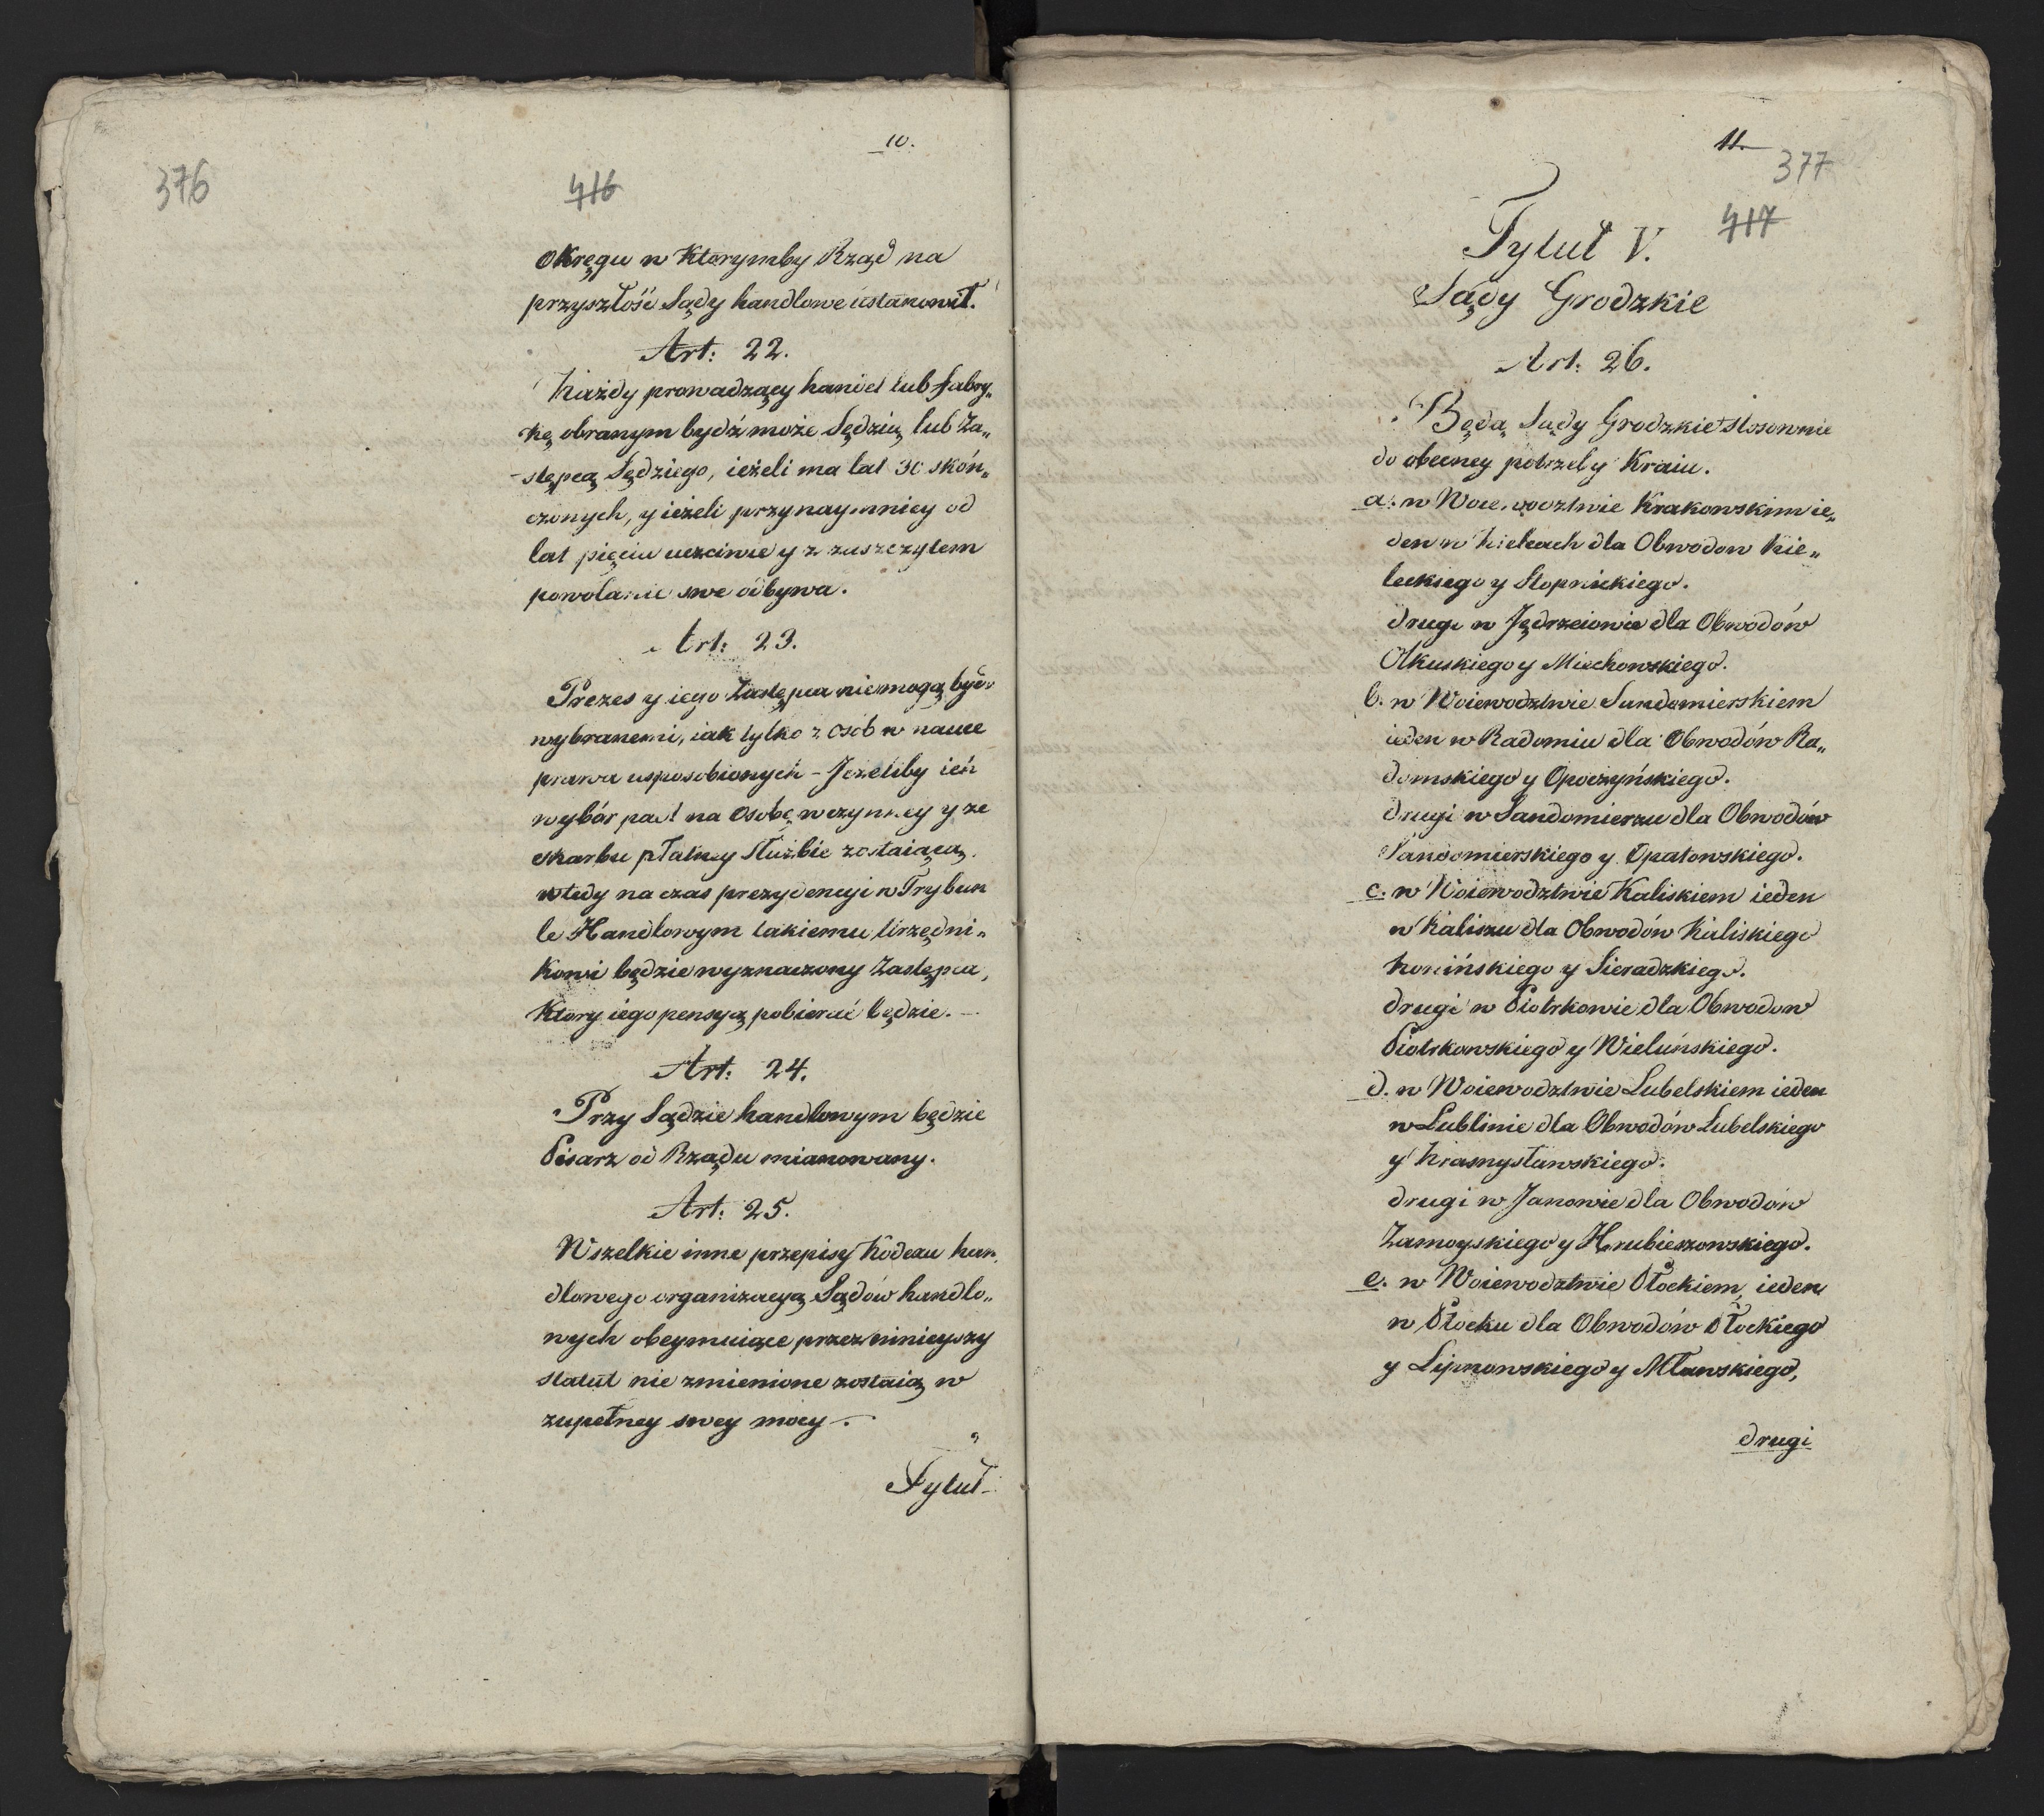 10.
376
416
okręgu w ktorymby Rząd na
przyszłość Sądy handlowe ustanowił.
Art: 22.
Każdy prowadzący handel lub fabry„
kę obranym bydź może Sędzią lub Za„
-stępcą Sędziego, ieżeli ma lat 30 skón„
czonych, y ieżeli przynaymniey od
lat pięciu uczciwie y z zaszczytem
powołanie swe odbywa.
Art: 23.
Prezes y iego Zastępca niemogą bydź
wybranemi, iak tylko z osób w nauce
prawa usposobionych - Jeżeliby ich
wybór padł na osobę w czynney y ze
skarbu płatney służbie zostaiącą,
wtedy na czas prezydencyi w Trybun
le Handlowym takiemu Urzędni„
kowi będzie wyznaczony Zastępca,
ktory iego pensyą pobierać będzie. -
Art: 24.
Przy Sądzie handlowym będzie
Pisarz od Rządu mianowany.
Art: 25.
Wszelkie inne przepisy Kodexu han„
dlowego organizacyą Sądów handlo„
wych obeymuiące przez ninieyszy
statut nie zmienione zostaią w
zupełney swey mocy.
Tytuł
11.
377
417
Tytuł V.
Sądy Grodzkie
Art: 26.
Będą Sądy Grodzkie stosownie
do obecney potrzeby Kraiu.
a. w Woiewodztwie Krakowskim ie„
den w Kielcach dla Obwodow Kie„
leckiego y Stopnickiego.
drugi w Jędrzeiowie dla Obwodów
Olkuskiego y Miechowskiego.
b. w Woiewodztwie Sandomierskiem
ieden w Radomiu dla Obwodów Ra„
domskiego y Opoczyńskiego.
drugi w Sandomierzu dla Obwodów
Sandomierskiego y Opatowskiego.
c. w Woiewodztwie Kaliskiem ieden
w Kaliszu dla Obwodów Kaliskiego
Konińskiego y Sieradzkiego.
drugi w Piotrkowie dla Obwodow
Piotrkowskiego y Wieluńskiego.
d. w Woiewodztwie Lubelskiem ieden
w Lublinie dla Obwodów Lubelskiego
y Krasnystawskiego.
drugi w Janowie dla Obwodów
Zamoyskiego y Hrubieszowskiego.
e. w Woiewodztwie Płockiem, ieden
w Płocku dla Obwodów Płockiego
y Lipnowskiego y Mławskiego,
drugi